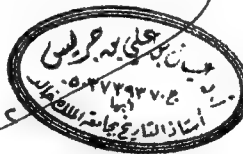 غيثان بن علي بن جريس
أبها
أستاذ التاريخ بجامعة الملك خالد